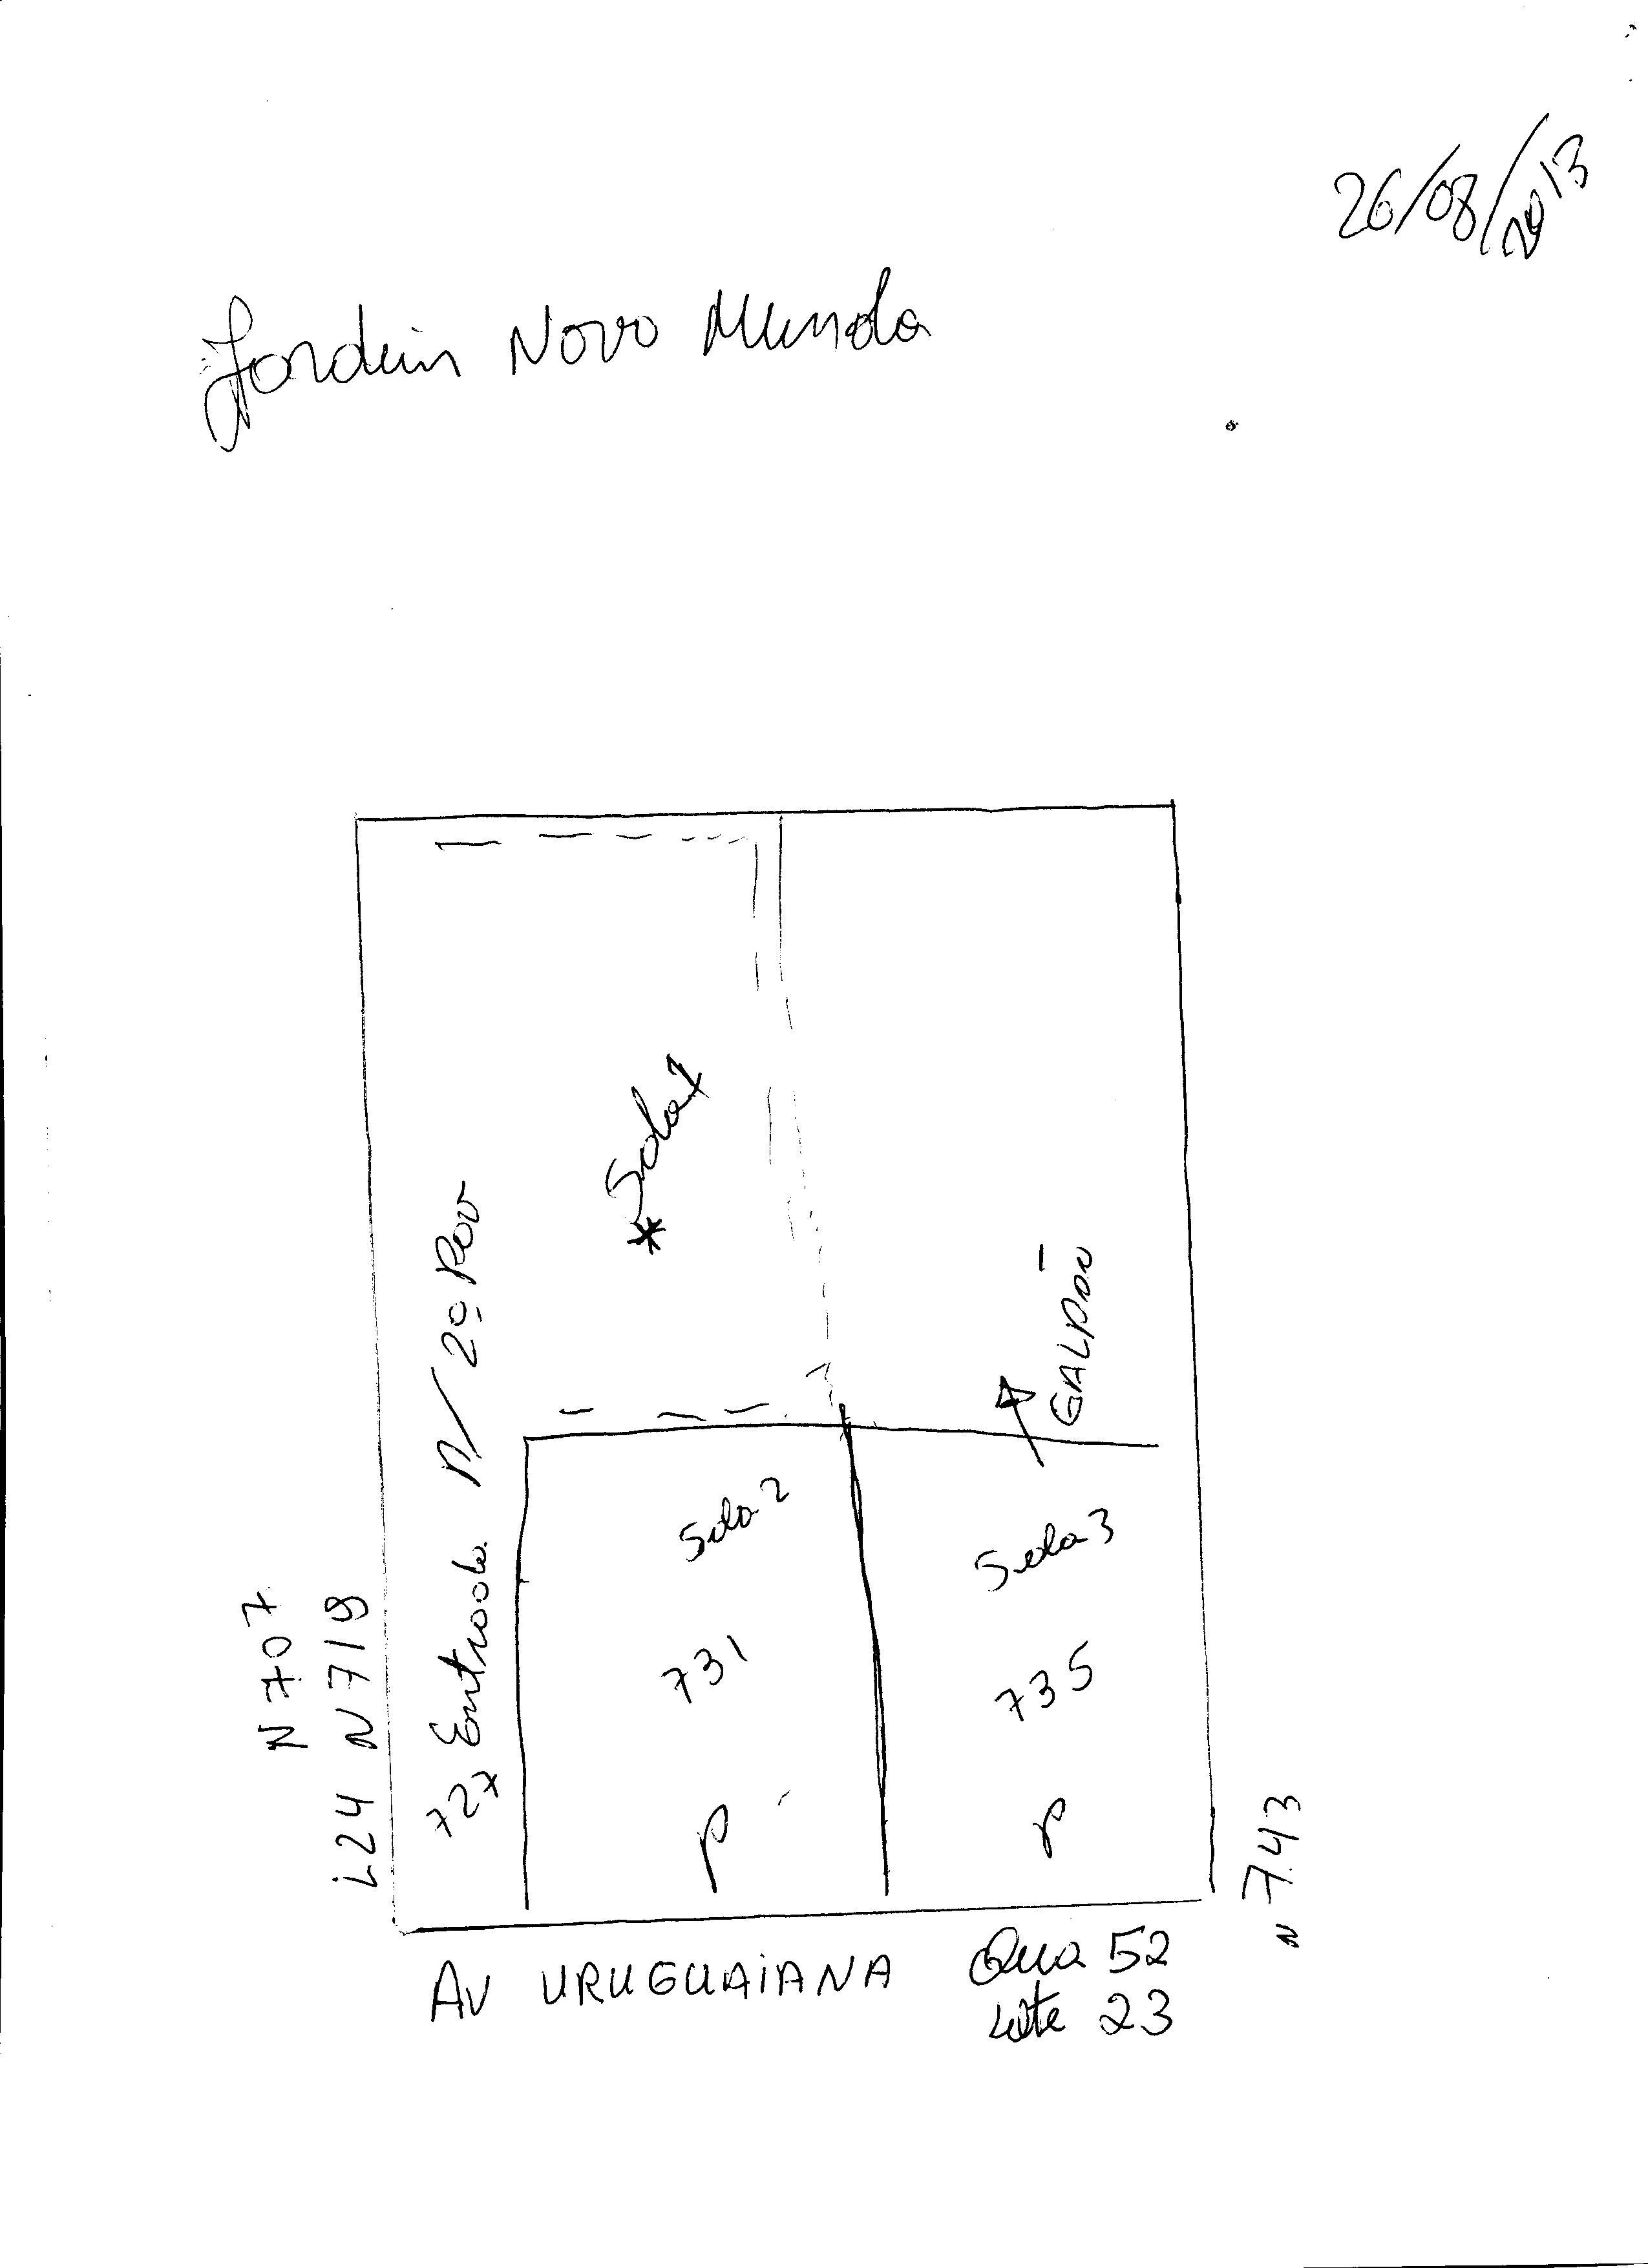 26/08/2013
Jardim Novo Mundo
* Sala 1
727 Entrada P/ 2º Pav
GALPÃO
Sala 2
731
P
Sala 3
735
P
N 707
L24 N 719
N 743
AV URUGUAIANA Qua 52
Lote 23